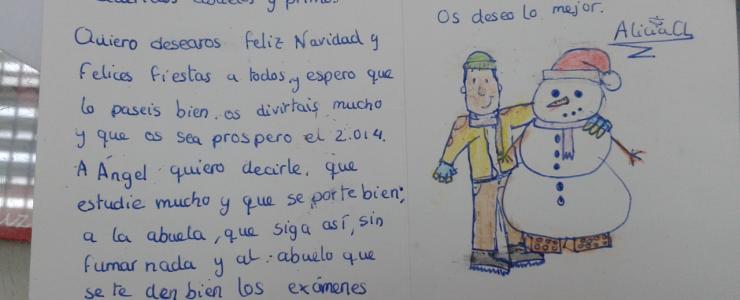 y primo
Quiero desearos Feliz Navidad y
Felices Fiestas a todos, y espero que
lo paseis bien, os divirtais mucho
y que os sea prospero el 2.014.
A Ángel quiero decirle, que
estudie mucho y que se porte bien;
a la abuela, que siga así, sin
fumar nada y al abuelo que
se te den bien los exámenes
Os deseo lo mejor.
Alicia CL